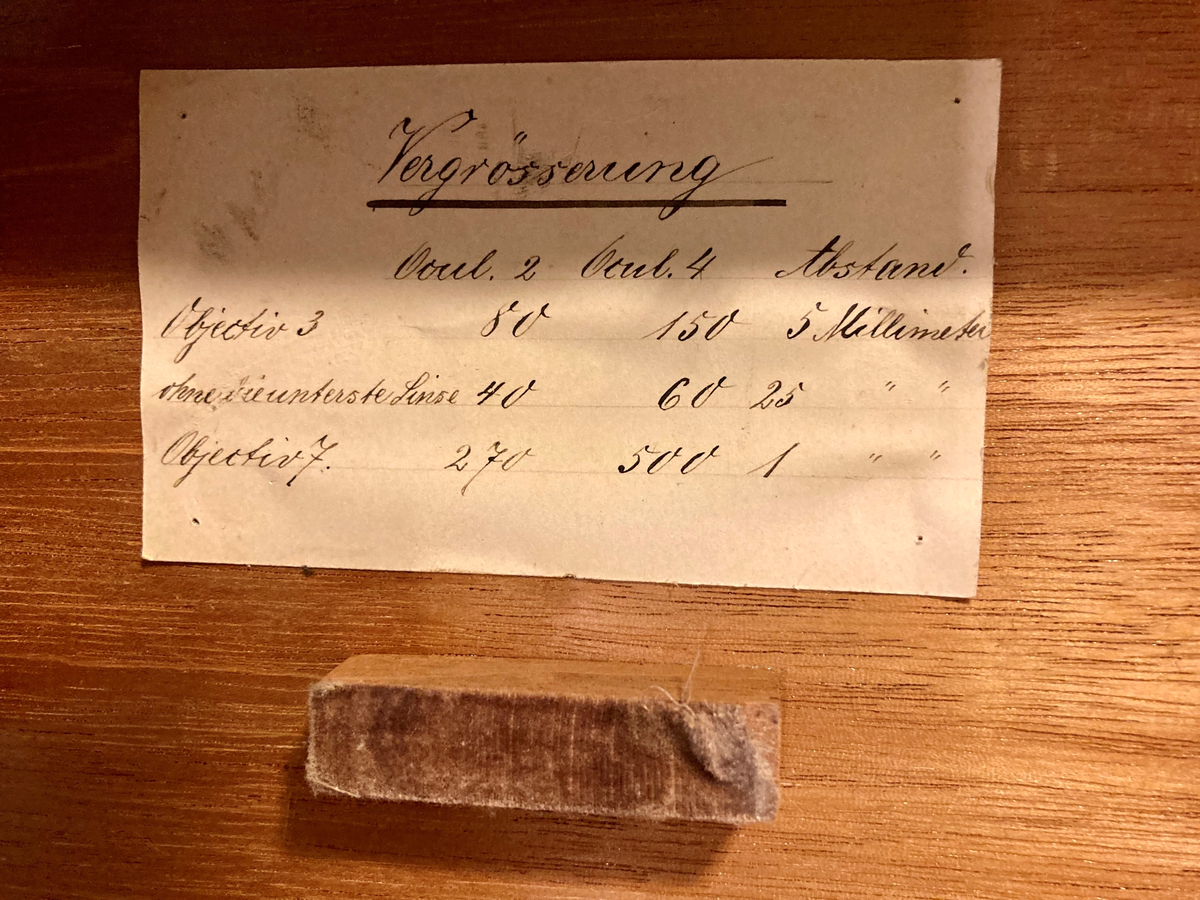 Vergrösserung
Ocul. 2 Ocul. 4 Abstand.
Objectiv 3 80 150 5 Millimeter
ohne die unterste Linse 40 60 25 " "
Objectiv 7. 270 500 1 " "